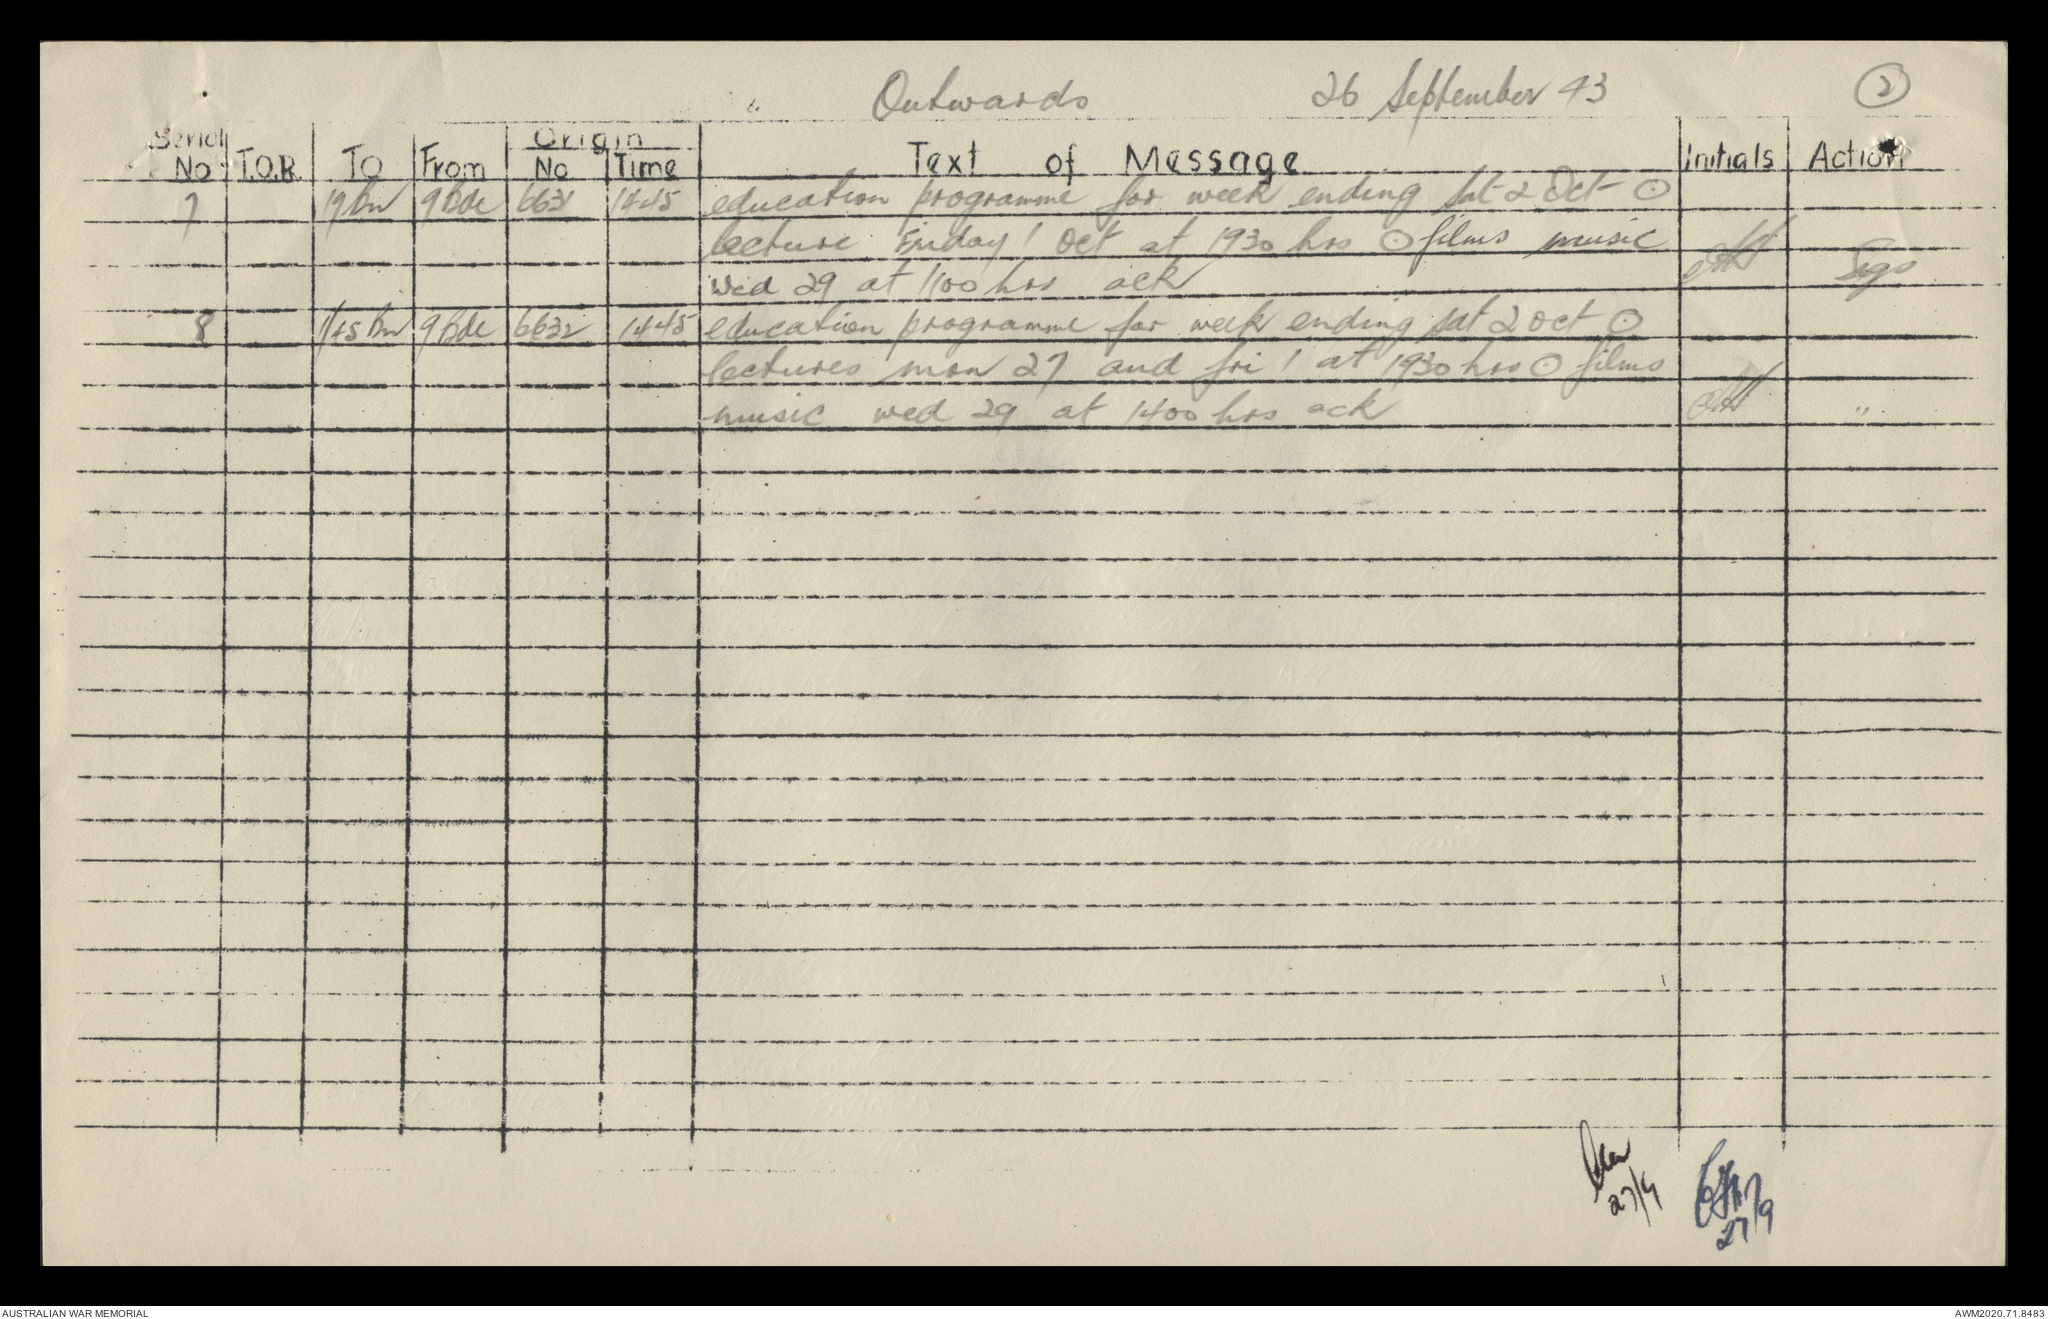 Outwards 26 September 43 2
Serial Origin
No T.O.R. To From No Time Text of Message Initials Action
7 19 Bn 9 Bde 6631 1445 education programme for week ending Sat 2 Oct ⊙
lecture Friday 1 Oct at 1930 hrs ⊙ films music
wed 29 at 1100 hrs ack Sigs
8 1/45 Bn 9 Bde 6632 1445 education programme for week ending sat 2 oct ⊙
lectures mon 27 and fri 1 at 1930 hrs ⊙ films
music wed 29 at 1400 hrs ack "
27/9
27/9
AUSTRALIAN WAR MEMORIAL AWM2020.71.8483